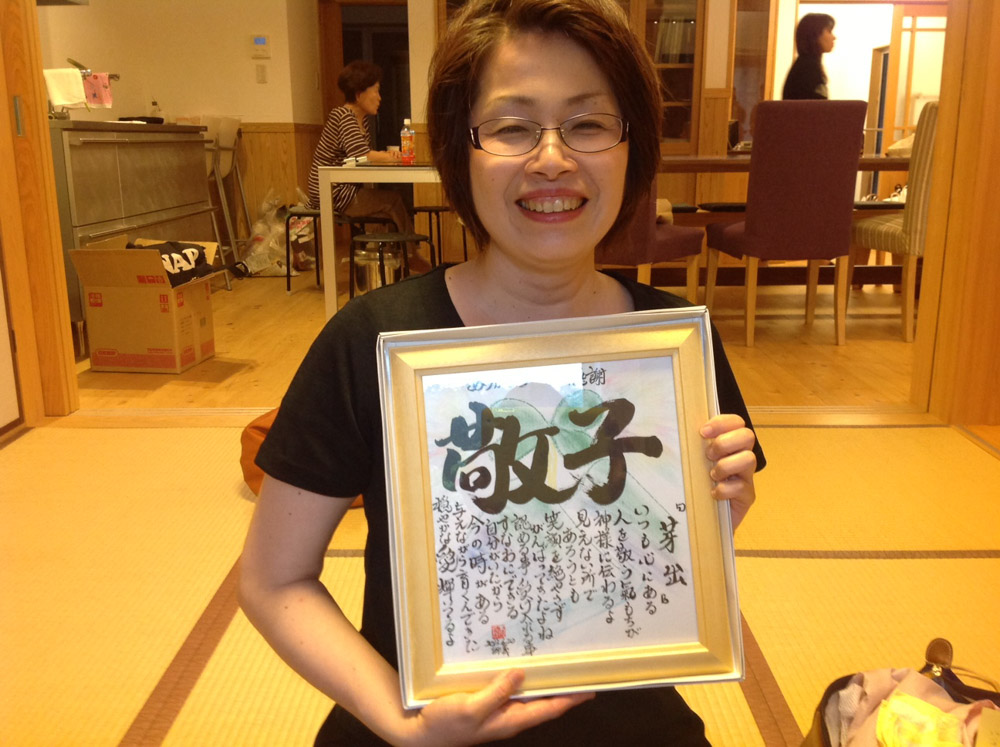 感謝
敬子
「芽出」
いつも心にある
人を敬う気もちが
神様に伝わるよ
見えない所で
あろうとも
笑顔を絶やさず
がんばってきたよね
認める事 受け入れる事
すなおにできる
自分がいたから
今の時がある
与えながら育くんできた
穏やかな愛 輝いてるよ
NAP